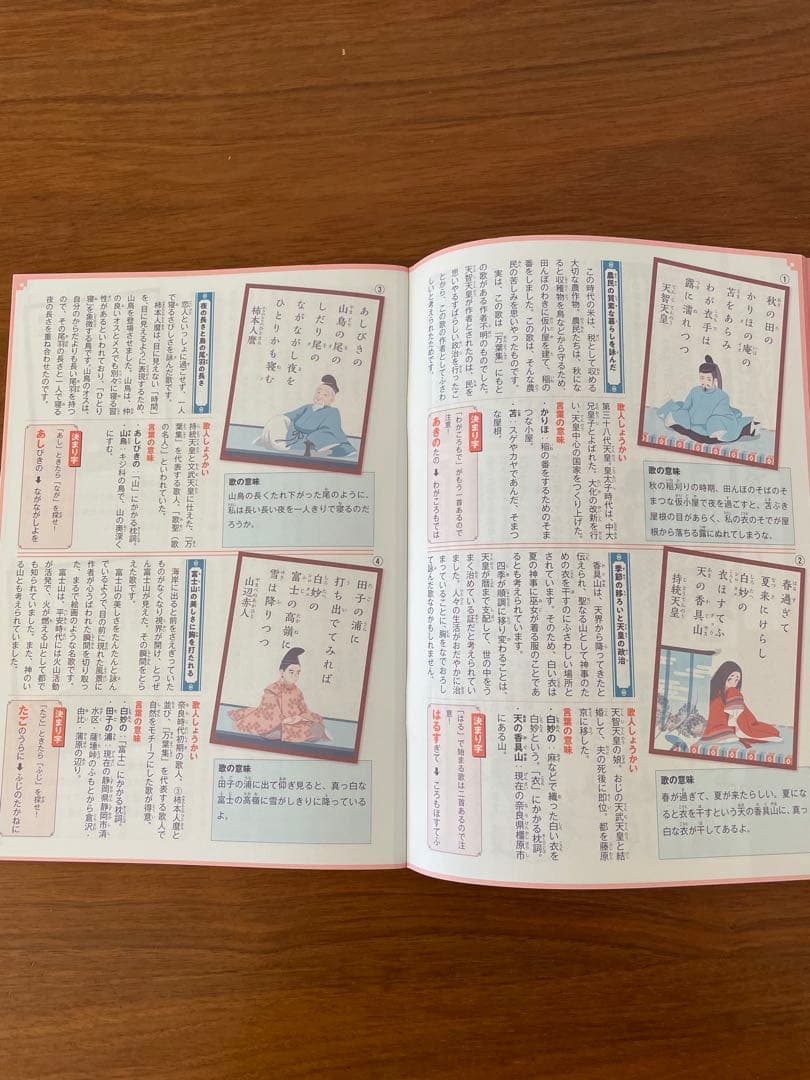 ①
秋の田の
かりほの庵の
苫をあらみ
わが衣手は
露に濡れつつ
天智天皇
農民の質素な暮らしを詠んだ
この時代の米は、税として収める
大切な農作物。農民たちは、秋にな
ると収穫物を鳥などから守るため、
田んぼのわきに仮小屋を建て、稲の
番をしました。この歌は、そんな農
民の苦しみを思いやったものです。
実は、この歌は『万葉集』にもと
の歌がある作者不明のものでした。
天智天皇が作者とされたのは、民を
思いやるすばらしい政治を行ったこ
とから、この歌の作者としてふさわ
しいと考えられたためです。
歌人しょうかい
第三十八代天皇。皇太子時代は、中大
兄皇子とよばれた。大化の改新を行
い、天皇中心の国家をつくり上げた。
言葉の意味
・かりほ：稲の番をするためのそま
つな小屋。
・苫：スゲやカヤであんだ、そまつ
な屋根。
決まり字
「わがころもで」がもう一首あるので
注意！
あきのたの➡わがころもては
歌の意味
秋の稲刈りの時期、田んぼのそばのそ
まつな仮小屋で夜を過ごすと、苫ぶき
屋根の目があらく、私の衣のそでが屋
根から落ちる露にぬれてしまうな。
②
春過ぎて
夏来にけらし
白妙の
衣ほすてふ
天の香具山
持統天皇
季節の移ろいと天皇の政治
香具山は、天界から降ってきたと
伝えられ、聖なる山として神事のた
めの衣を干すのにふさわしい場所と
されています。そのため、白い衣は
夏の神事に巫女が着る服のことであ
るとも考えられています。
四季が順調に移り変わることは、
天皇が暦まで支配して、世の中をう
まく治めている証だと考えられてい
ました。人々の生活がおだやかに治
まっていることに、胸をなでおろし
て詠んだ歌なのかもしれません。
歌人しょうかい
天智天皇の娘。おじの天武天皇と結
婚して、夫の死後に即位。都を藤原
京に移した。
言葉の意味
・白妙の：麻などで織った白い衣を
白妙という。「衣」にかかる枕詞。
・天の香具山：現在の奈良県橿原市
にある山。
決まり字
「はる」で始まる歌は二首あるので注
意！
はるすぎて➡ころもほすてふ
歌の意味
春が過ぎて、夏が来たらしい。夏にな
ると衣を干すという天の香具山に、真っ
白な衣が干してあるよ。
③
あしびきの
山鳥の尾の
しだり尾の
ながながし夜を
ひとりかも寝む
柿本人麿
夜の長さと鳥の尾羽の長さ
恋人といっしょに過ごせず、一人
で寝るさびしさを詠んだ歌です。
柿本人麿は、目に見えない「時間」
を、目に見えるように表現するため、
山鳥を登場させました。山鳥は、仲
の良いオスとメスでも別々に寝る習
性があるといわれており、「ひとり
寝」を象徴する鳥です。山鳥のオスは、
自分のからだよりも長い尾羽を持つ
ので、その尾羽の長さと一人で寝る
夜の長さを重ね合わせたのです。
歌人しょうかい
持統天皇と文武天皇に仕えた、『万
葉集』を代表する歌人。「歌聖（歌
の名人）」といわれていた。
言葉の意味
・あしびきの：「山」にかかる枕詞。
・山鳥：キジ科の鳥で、山の奥深く
にすむ。
決まり字
「あし」ときたら「なが」を探せ！
あしびきの➡ながながしよを
歌の意味
山鳥の長くたれ下がった尾のように、
私は長い長い夜を一人きりで寝るのだ
ろうか。
④
田子の浦に
打ち出でてみれば
白妙の
富士の高嶺に
雪は降りつつ
山辺赤人
富士山の美しさに胸を打たれる
海岸に出ると前をさえぎっていた
ものがなくなり視界が開け、とつぜ
ん富士山が見えた、その瞬間をとら
えた歌です。
富士山の美しさをたんたんと詠ん
でいるようで、目の前に現れた風景に
作者が心うばわれた瞬間を切り取っ
た、まるで絵画のような名歌です。
富士山は、平安時代には火山活動
が活発で、火が燃える山として都で
も知られていました。また、神のい
る山とも考えられていました。
歌人しょうかい
奈良時代初期の歌人。③柿本人麿と
並び、『万葉集』を代表する歌人で
自然をモチーフにした歌が得意。
言葉の意味
・白妙の：「富士」にかかる枕詞。
・田子の浦：現在の静岡県静岡市清
水区・薩埵峠のふもとから倉沢・
由比・蒲原の辺り。
決まり字
「たご」ときたら「ふじ」を探せ！
たごのうらに➡ふじのたかねに
歌の意味
田子の浦に出て仰ぎ見ると、真っ白な
富士の高嶺に雪がしきりに降っている
よ。